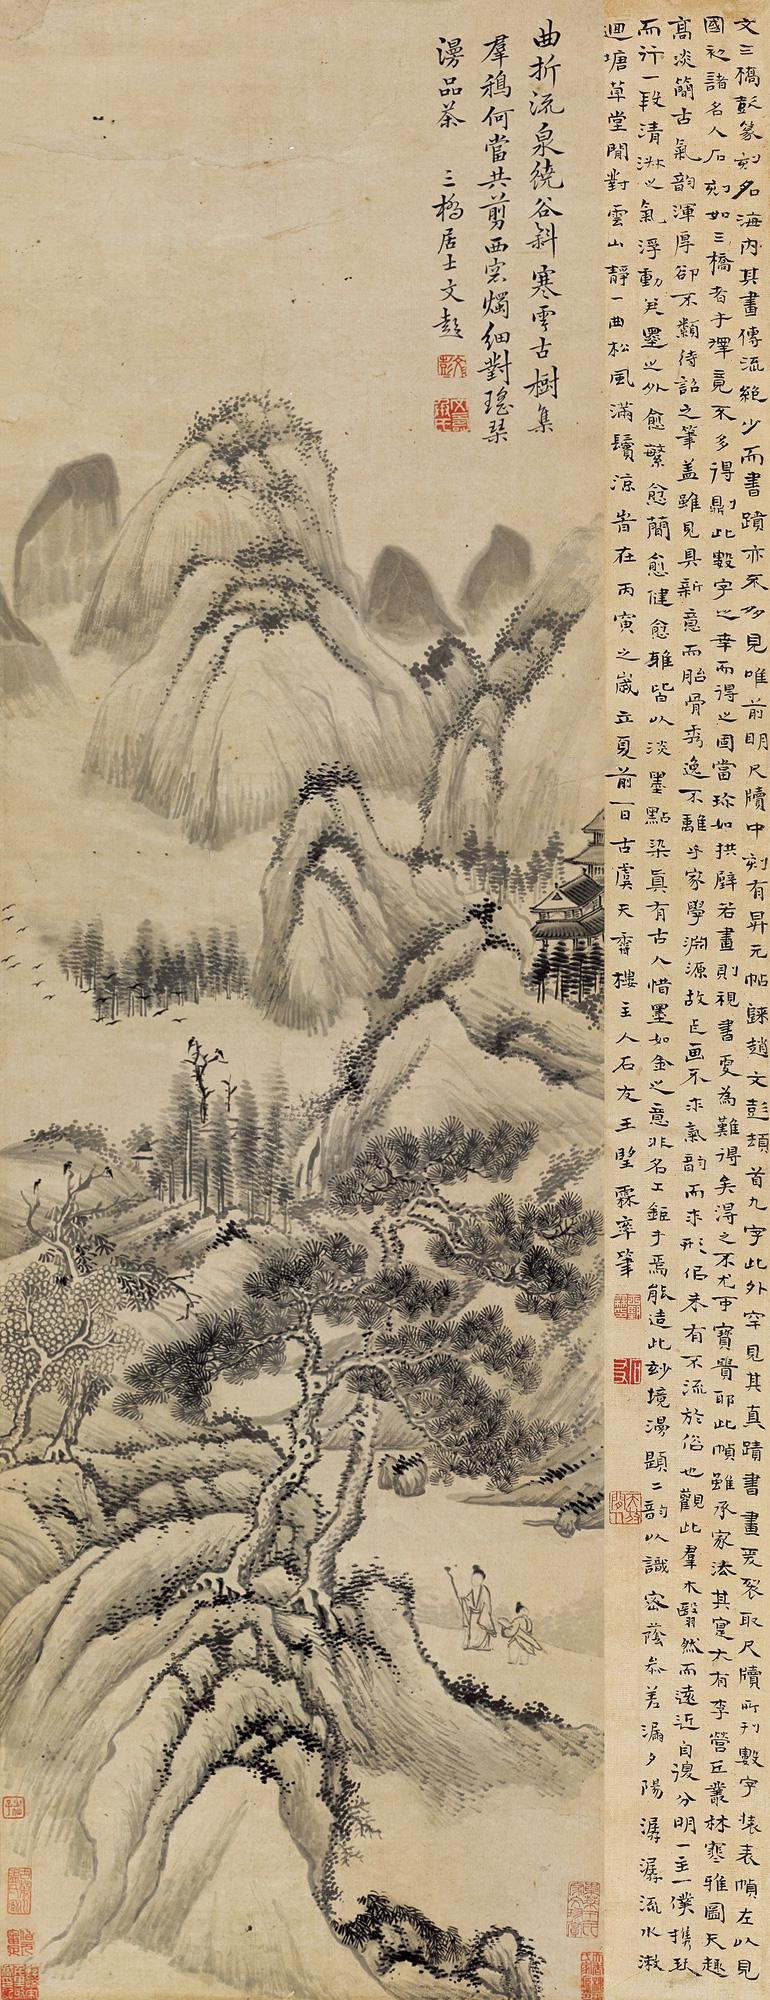 文三橋彭篆刻名海內其畫傳流絕少而書蹟亦不多見唯前明尺牘中刻有昇元帖歸趙文彭頓首九字此外罕見其真蹟書畫爰裂取尺牘所刊數字裝表幀左以見
國初諸名人石刻如三橋者手澤竟不多得則此數字之幸而得之固當珍如拱璧若畫則視書更為難得矣得之不尤可寶貴耶此幀雖承家法其寔大有李營丘叢林寒雅圖天趣
高淡簡古氣韵渾厚卻不類待詔之筆蓋雖見具新意而胎骨秀逸不離乎家學淵源故作画不求氣韵而求形佀未有不流於俗也觀此羣木翳然而遠近自復分明一主一僕攜琴
而行一段清淋之氣浮動筆墨之外愈繁愈簡愈健愈雅皆以淡墨點染真有古人惜墨如金之意非名工鉅手焉能造此玅境漫題二韵以識密蔭參差漏夕陽潺潺流水漱
迴塘草堂閒對雲山靜一曲松風滿鬢涼旹在丙寅之歲立夏前一日古虞天香樓主人石友王望霖率筆
曲折流泉繞谷斜寒雲古樹集
羣鴉何當共剪西窓燭細對瑤琴
漫品茶 三橋居士文彭
文彭